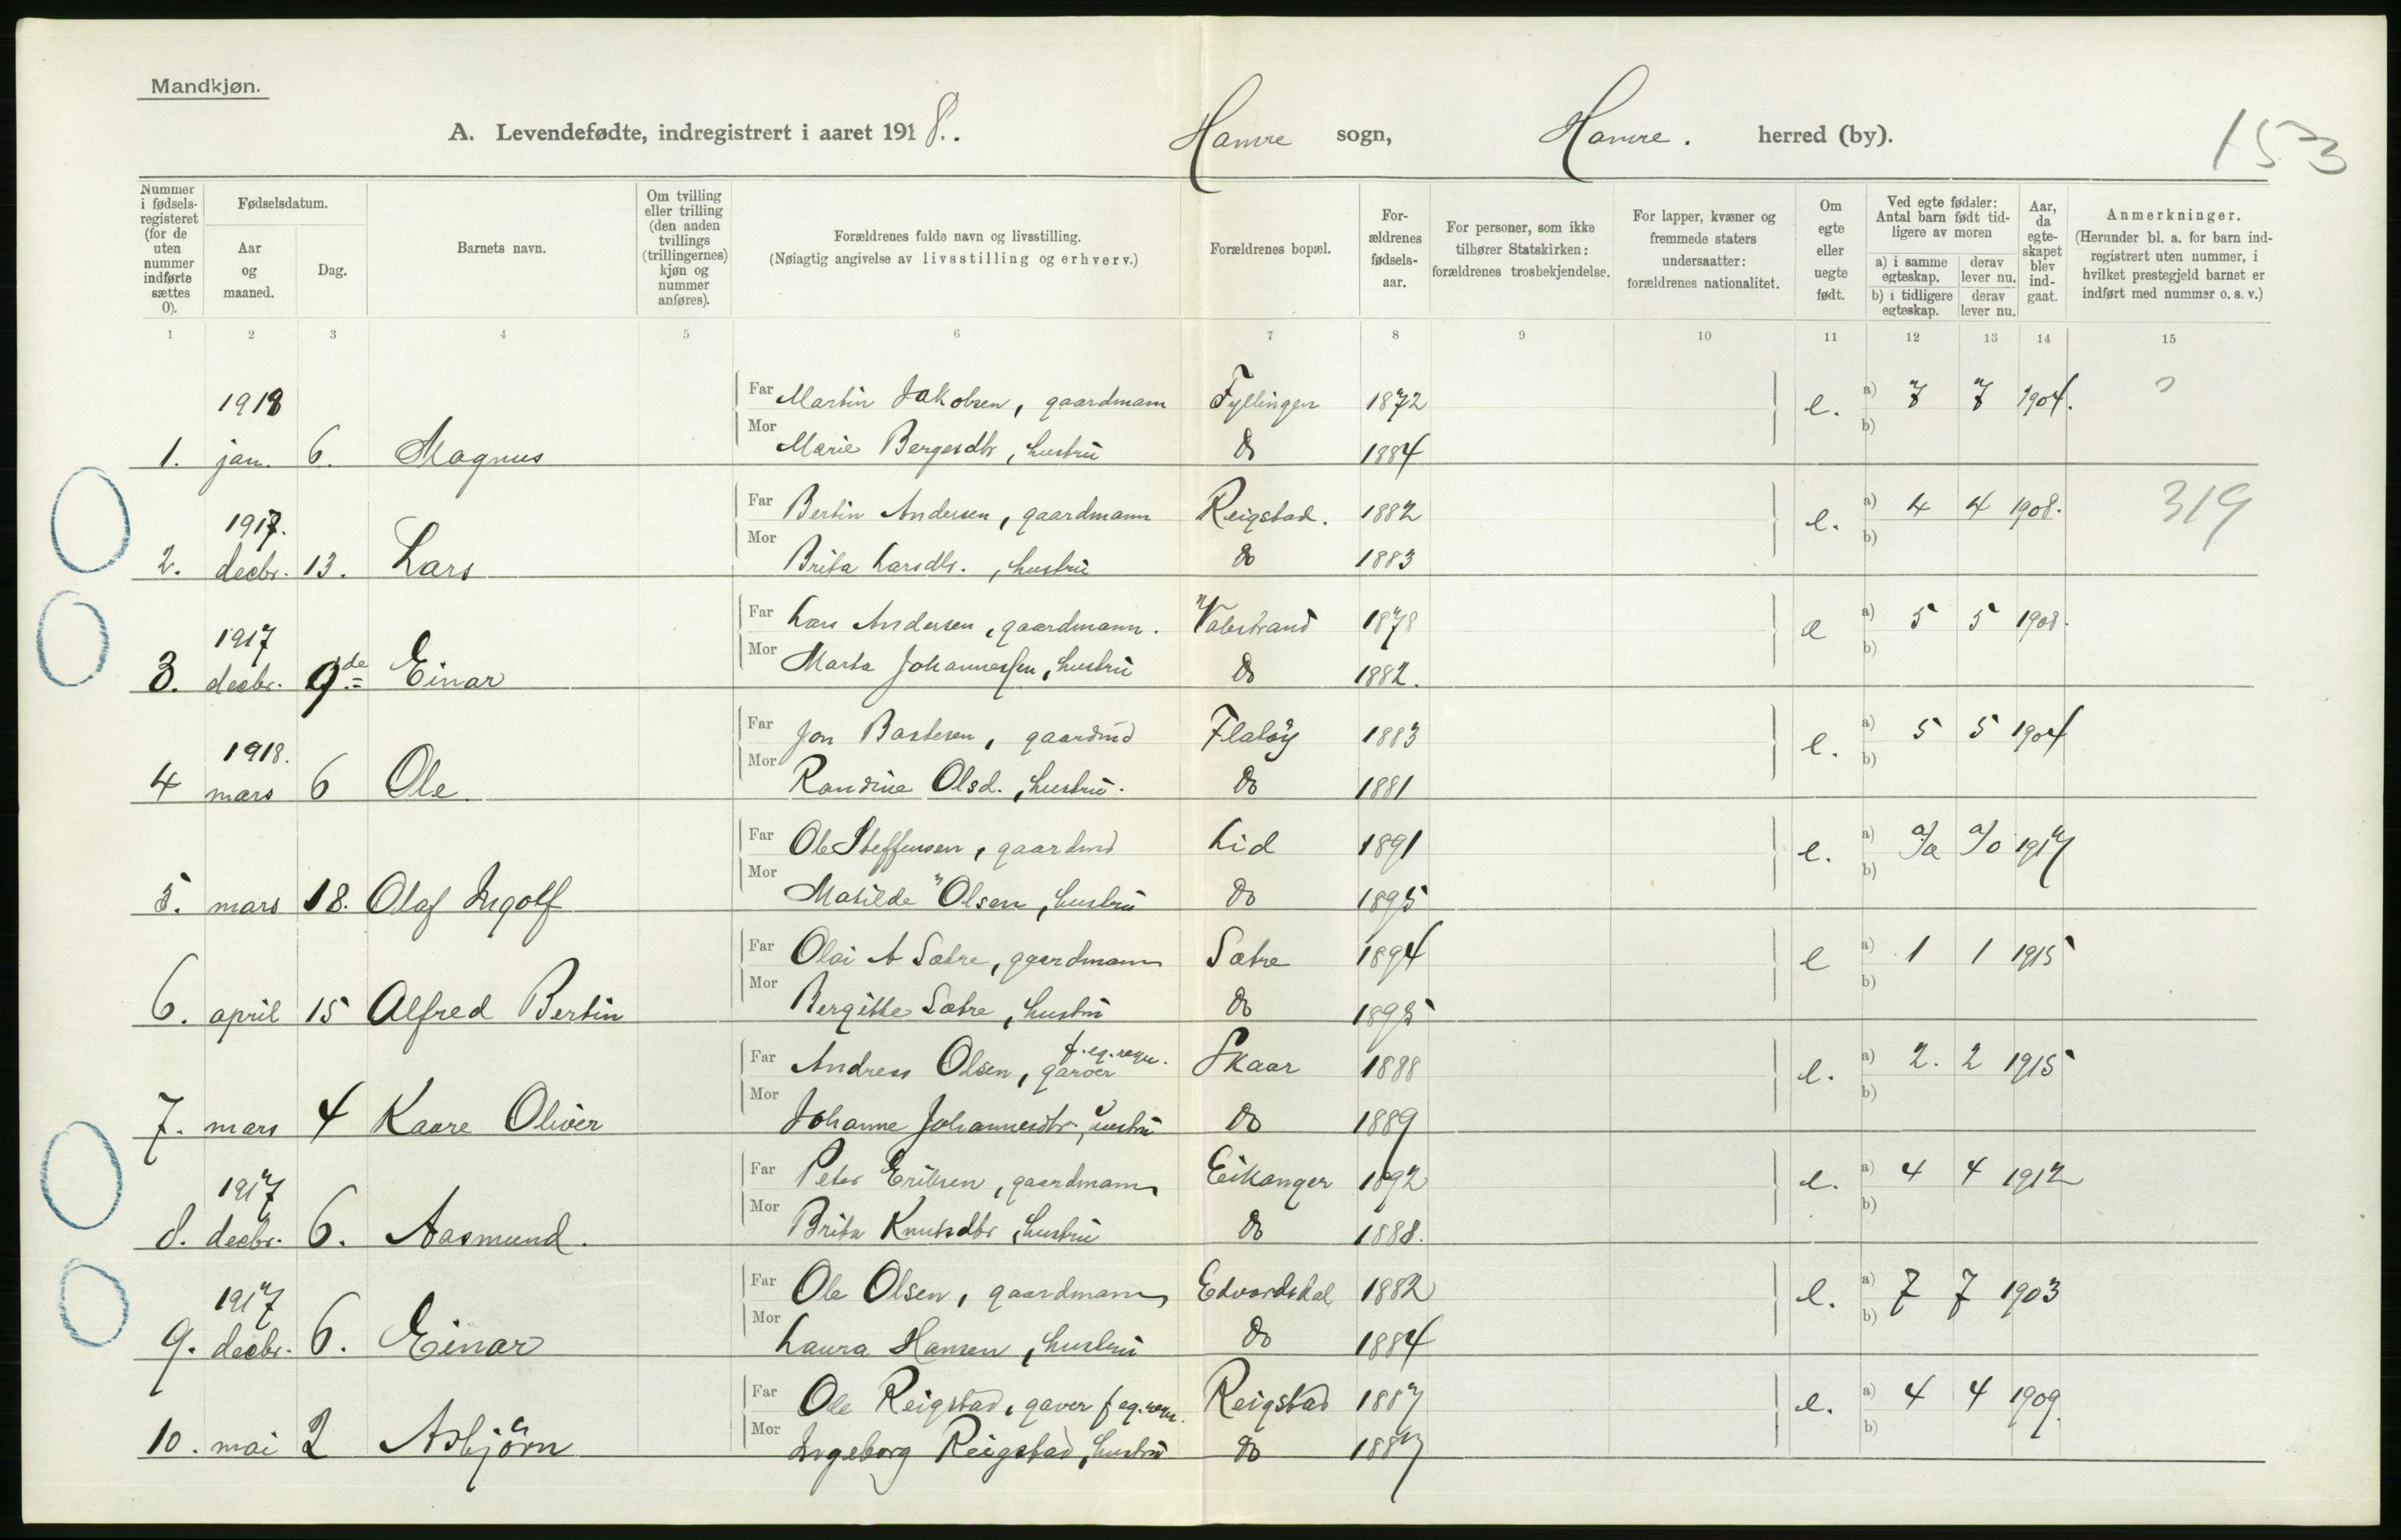 Mandkjøn.
A. Levendefødte, indregistrert i aaret 1918. Hamre sogn, Hamre. herred (by).
153
Nummer i fødsels-registeret (for de uten nummer indførte sættes 0).
Fødselsdatum.
Aar og maaned.
Dag.
Barnets navn.
Om tvilling eller trilling (den anden tvillings (trillingernes) kjøn og nummer anføres).
Forældrenes fulde navn og livsstilling.
(Nøiagtig angivelse av livsstilling og erhverv.)
Forældrenes bopæl.
For-ældrenes fødsels-aar.
For personer, som ikke tilhører Statskirken: forældrenes trosbekjendelse.
For lapper, kvæner og fremmede staters undersaatter: forældrenes nationalitet.
Om egte eller uegte født.
Ved egte fødsler: Antal barn født tid-ligere av moren
a) i samme egteskap.
derav lever nu.
b) i tidligere egteskap.
derav lever nu.
Aar, da egte-skapet blev ind-gaat.
Anmerkninger.
(Herunder bl. a. for barn ind-registrert uten nummer, i hvilket prestegjeld barnet er indført med nummer o. s. v.)
1 2 3 4 5 6 7 8 9 10 11 12 13 14 15
1918 Far Martin Jakobsen, gaardmann Fyllingen 1872 e. a) 7 7 1904.
1. jan. 6. Magnus Mor Marie Bergesdtr, hustru do 1884 b)
1917. Far Bertin Andersen, gaardmann Reigstad. 1882 e. a) 4 4 1908. 319
2. decbr. 13. Lars Mor Brita Larsdtr., hustru do 1883 b)
1917 Far Lars Andersen, gaardmann. Valestrand 1878 e a) 5 5 1908.
3. decbr. 9de Einar Mor Marta Johannessen, hustru do 1882. b)
1918. Far Jon Bastesen, gaardmd Flatøy 1883 e. a) 5 5 1904
4 mars 6 Ole Mor Randine Olsd., hustru. do 1881 b)
Far Ole Steffensen, gaardmd Lid 1891 e. a) 1917
5. mars 18. Olaf Ingolf Mor Matilde Olsen, hustru do 1895 b)
Far Olai A Sætre, gaardmann Sætre 1894 e a) 1 1 1915
6. april 15 Alfred Bertin Mor Bergitte Sætre, hustru do 1895 b)
Far Andreas Olsen, garver f. eg. regn. Skaar 1888 e. a) 2. 2 1915
7. mars 4 Kaare Oliver Mor Johanne Johannesdtr., hustru do 1889 b)
1917 Far Peter Eriksen, gaardmann Eikanger 1892 e. a) 4 4 1912
8. decbr. 6. Aasmund. Mor Brita Knutsdtr, hustru do 1888. b)
1917 Far Ole Olsen, gaardmann Edvardsdal 1882 e. a) 7 7 1903
9. decbr. 6. Einar Mor Laura Hansen, hustru do 1884 b)
Far Ole Reigstad, gaver f eg. regn. Reigstad 1887 e. a) 4 4 1909
10. mai 2 Asbjörn Mor Ingeborg Reigstad, hustru do 1887 b)